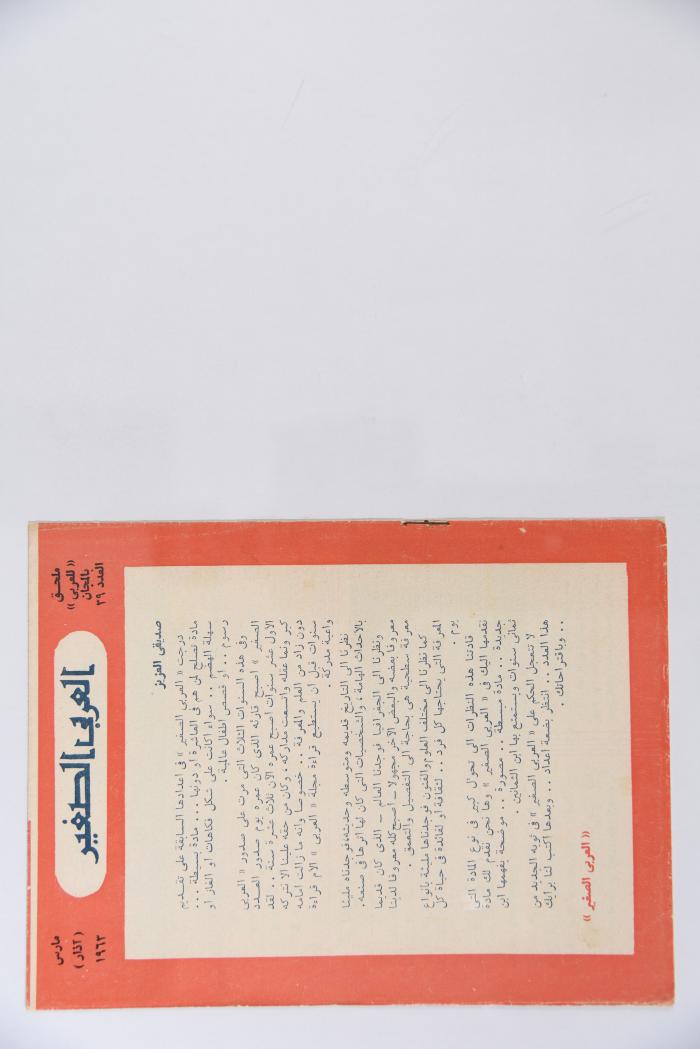 مارس
( آذار )
١٩٦٣
العربي الصغير
ملحق
« للعربي »
بالمجان
العدد ٣٩
صديقى العزيز
درجت « العربى الصغير » فى أعدادها السابقة على تقديم
مادة تصلح لمن هم فى العاشرة أو دونها .. مادة بسيطة ...
سهلة الهضم .. سواء أكانت على شكل فكاهات أو الغاز أو
رسوم .. أو قصص أطفال عالمية .
وفى هذه السنوات الثلاث التى مرت على صدور « العربى
الصغير » أصبح قارئه الذى كان عمره يوم صدور العدد
الأول عشر سنوات أصبح عمره الآن ثلاث عشرة سنة .. لقد
كبر ونما عقله واتسعت مداركه ، وكان من حقه علينا ألا نتركه
دون زاد من العلم والمعرفة .. خصوصا وأنه ما زالت أمامه
سنوات قبل أن يستطيع قراءة مجلة « العربى » الأم قراءة
واعية مدركة .
نظرنا الى التاريخ قديمه ومتوسطه وحديثه، فوجدناه مليئا
بالأحداث الهامة، والشخصيات التى كان لها أثرها فى صنعه .
ونظرنا الى الجغرافيا فوجدنا العالم – الذى كان قديما
معروفا بعضه والبعض الآخر مجهولا – أصبح كله معروفا لدينا
معرفة سطحية هى بحاجة الى التفصيل والتعمق .
كما نظرنا الى مختلف العلوم والفنون فوجدناها مليئة بأنواع
المعرفة التى يحتاجها كل فرد .. لثقافة أو لفائدة فى حياة كل
يوم .
قادتنا هذه النظرات الى تحول كبير فى نوع المادة التى
نقدمها اليك فى « العربى الصغير » وها نحن نقدم لك مادة
جديدة .. مادة مبسطة .. مصورة .. موضحة يفهمها ابن
ثمانى سنوات ويستمتع بها ابن الثمانين.
لا تتعجل الحكم على « العربى الصغير » فى ثوبه الجديد من
هذا العدد .. انتظر بضعة أعداد .. وبعدها اكتب لنا برأيك
.. وباقتراحاتك .
« العربى الصغير »